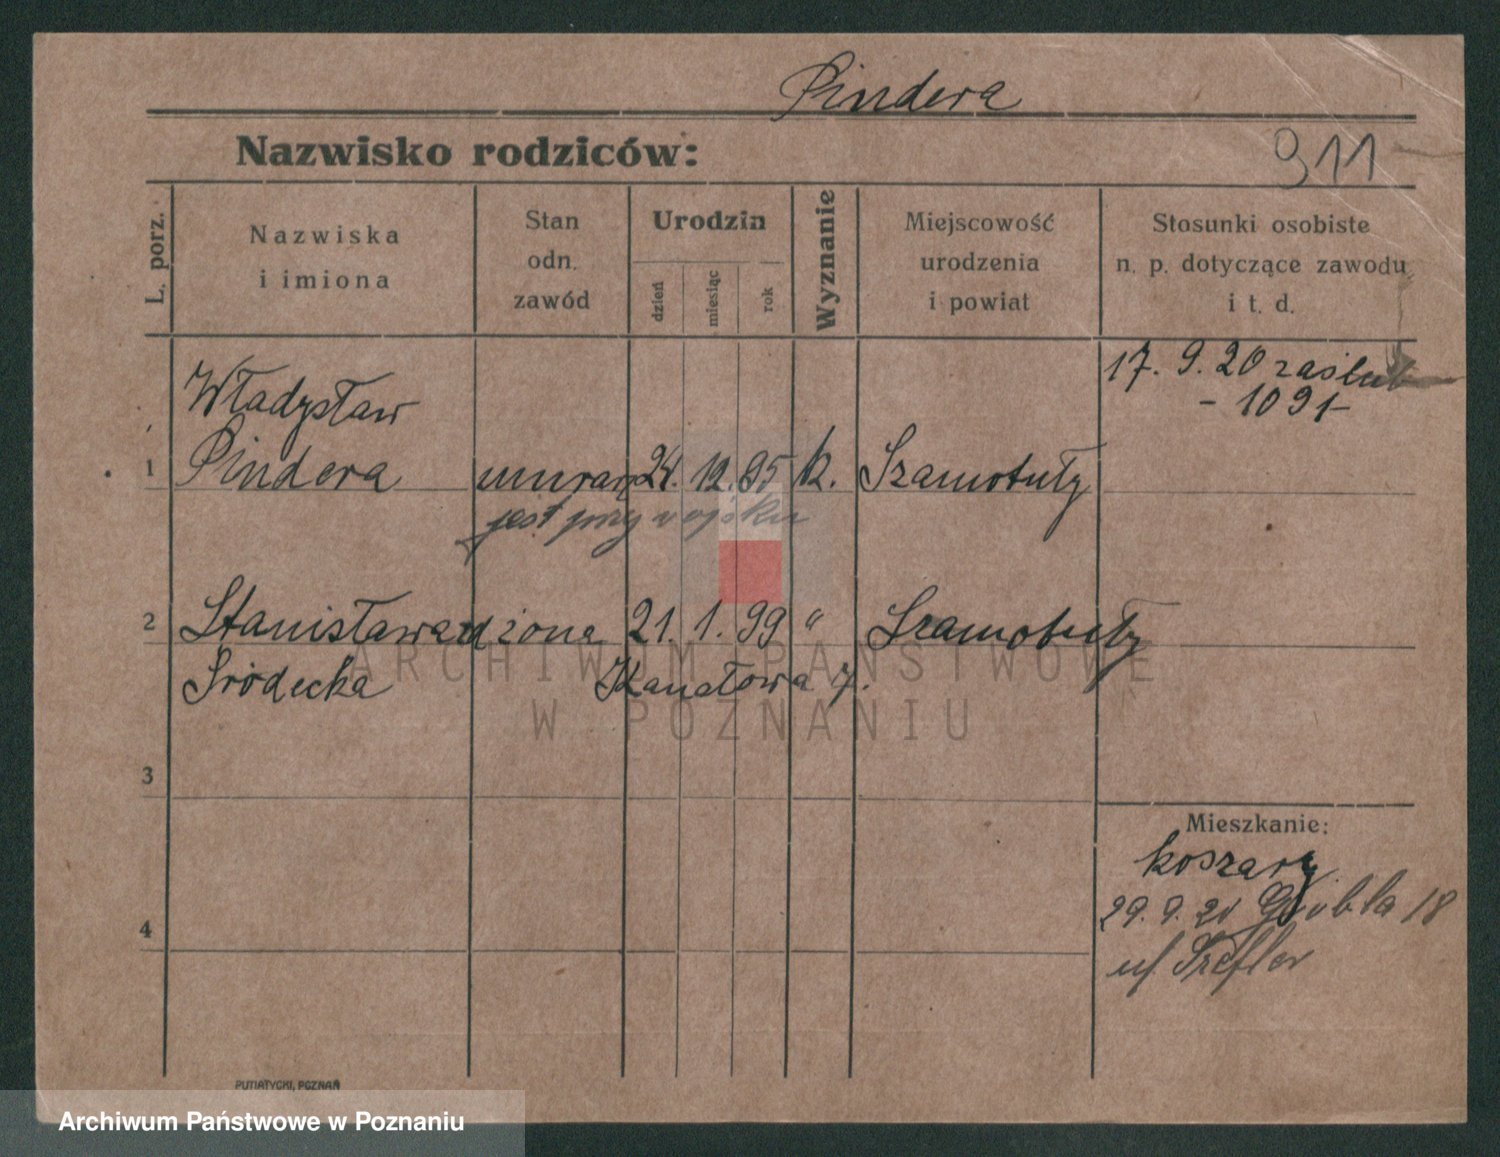 Pindera
Nazwisko rodziców:
911
L. porz.
Nazwiska
i imiona
Stan
odn.
zawód
Urodzin
dzień
miesiąc
rok
Wyznanie
Miejscowość
urodzenia
i powiat
Stosunki osobiste
n. p. dotyczące zawodu
i t. d.
17. 9. 20 zaślub
- 1091-
Władysław
1 Pindera murarz 24. 12. 95 k. Szamotuły
jest przy wojsku
2 Stanisława zd żona 21. 1. 99 " Szamotuły
Środecka Kanałowa 7.
3
4
Mieszkanie:
koszary
29. 9. 20 Grobla 18
u/ Szefler
ARCHIWUM PAŃSTWOWE
W POZNANIU
PUTIATYCKI, POZNAŃ
Archiwum Państwowe w Poznaniu